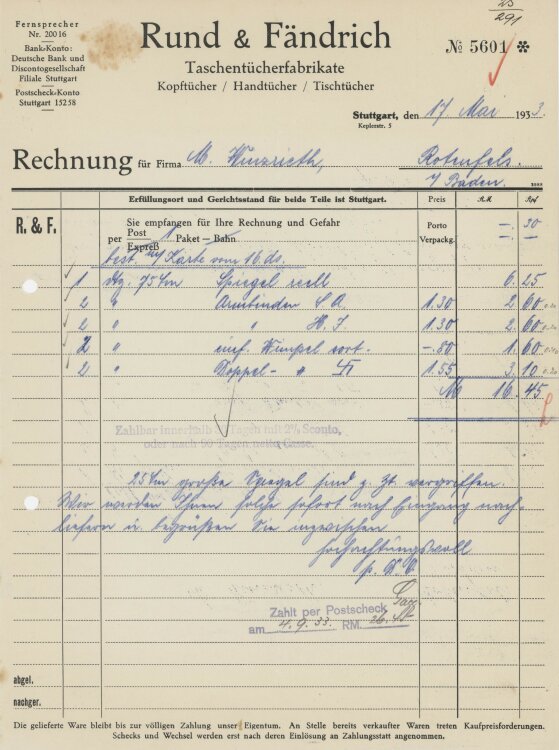 23
291
Fernsprecher
Nr. 20016
Bank-Konto:
Deutsche Bank und
Discontogesellschaft
Filiale Stuttgart
Postscheck-Konto
Stuttgart 15258
Rund & Fändrich
Taschentücherfabrikate
Kopftücher / Handtücher / Tischtücher
№ 5601 *
Stuttgart, den 17 Mai 1933.
Keplerstr. 5
Rechnung für Firma M. Winzrieth, Rotenfels.
i/ Baden.
Erfüllungsort und Gerichtsstand für beide Teile ist Stuttgart. Preis R.M. Rpf
R. & F. Sie empfangen für Ihre Rechnung und Gefahr Porto –. 30
per Post Expreß 1 Paket – Bahn Verpackg. –. –
best. m/ Karte vom 16 ds.
1 Dtz. 75 cm Spiegel reell 6. 25
2 " Armbinden S. A. 1.30 2. 60
2 " " H. J. 1.30 2. 60
2 " einf. Wimpel sort. –.80 1. 60
2 " Doppel- " 卐 1.55 3. 10
M 16. 45
Zahlbar innerhalb Tagen mit 2% Sconto,
oder nach 60 Tagen netto Casse.
25 cm große Spiegel sind z. Zt. vergriffen.
Wir werden Ihnen solche sofort nach Eingang nach-
liefern u. begrüßen Sie inzwischen
hochachtungsvoll
Zahlt per Postscheck
am 4.9.33. RM.
abgel.
nachger.
Die gelieferte Ware bleibt bis zur völligen Zahlung unser Eigentum. An Stelle bereits verkaufter Waren treten Kaufpreisforderungen.
Schecks und Wechsel werden erst nach deren Einlösung an Zahlungsstatt angenommen.